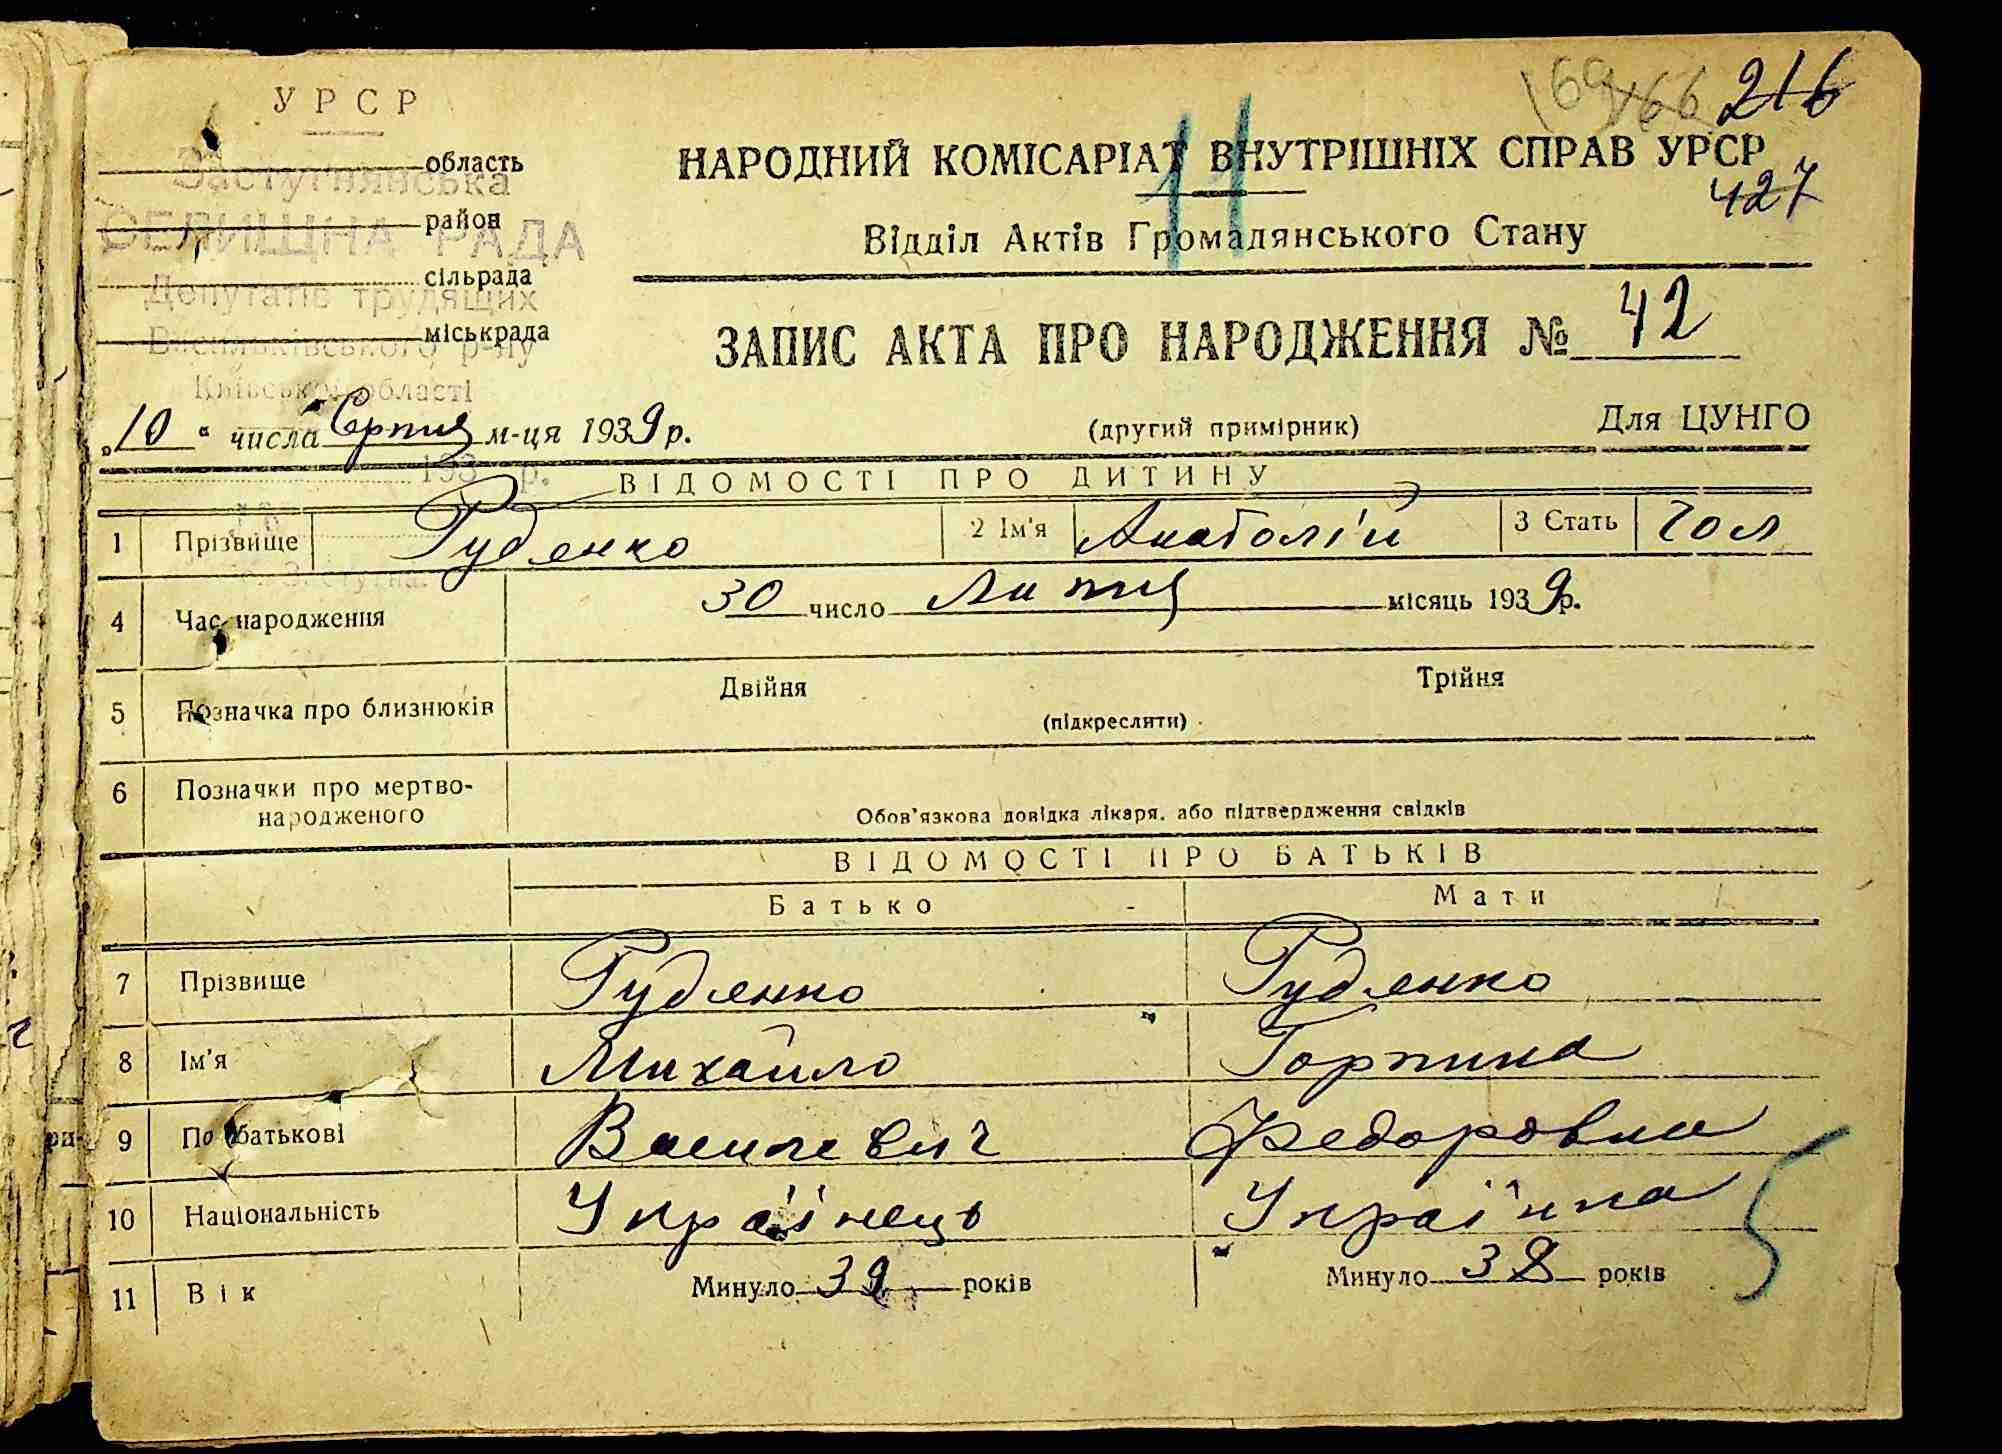 169 166 216
УРСР
область
район
сільрада
міськрада
СЕЛИЩНА РАДА
Депутатів трудящих
Васильківського р-ну
Київської області
193 р.
НАРОДНИЙ КОМІСАРІАТ ВНУТРІШНІХ СПРАВ УРСР
427
11
Відділ Актів Громадянського Стану
ЗАПИС АКТА ПРО НАРОДЖЕННЯ № 42
„10“ числа Серпня м-ця 1939 р. (другий примірник) Для ЦУНГО
ВІДОМОСТІ ПРО ДИТИНУ
1 Прізвище Руденко 2 Ім'я Анатолій 3 Стать Чол
4 Час народження 30 число Липня місяць 1939 р.
5 Позначка про близнюків Двійня Трійня
(підкреслити)
6 Позначки про мертво-
народженого Обов'язкова довідка лікаря, або підтвердження свідків
ВІДОМОСТІ ПРО БАТЬКІВ
Батько Мати
7 Прізвище Руденко Руденко
8 Ім'я Михайло Горпина
9 По батькові Василевич Федоровна
10 Національність Українець Українка
5
11 Вік Минуло 39 років Минуло 38 років